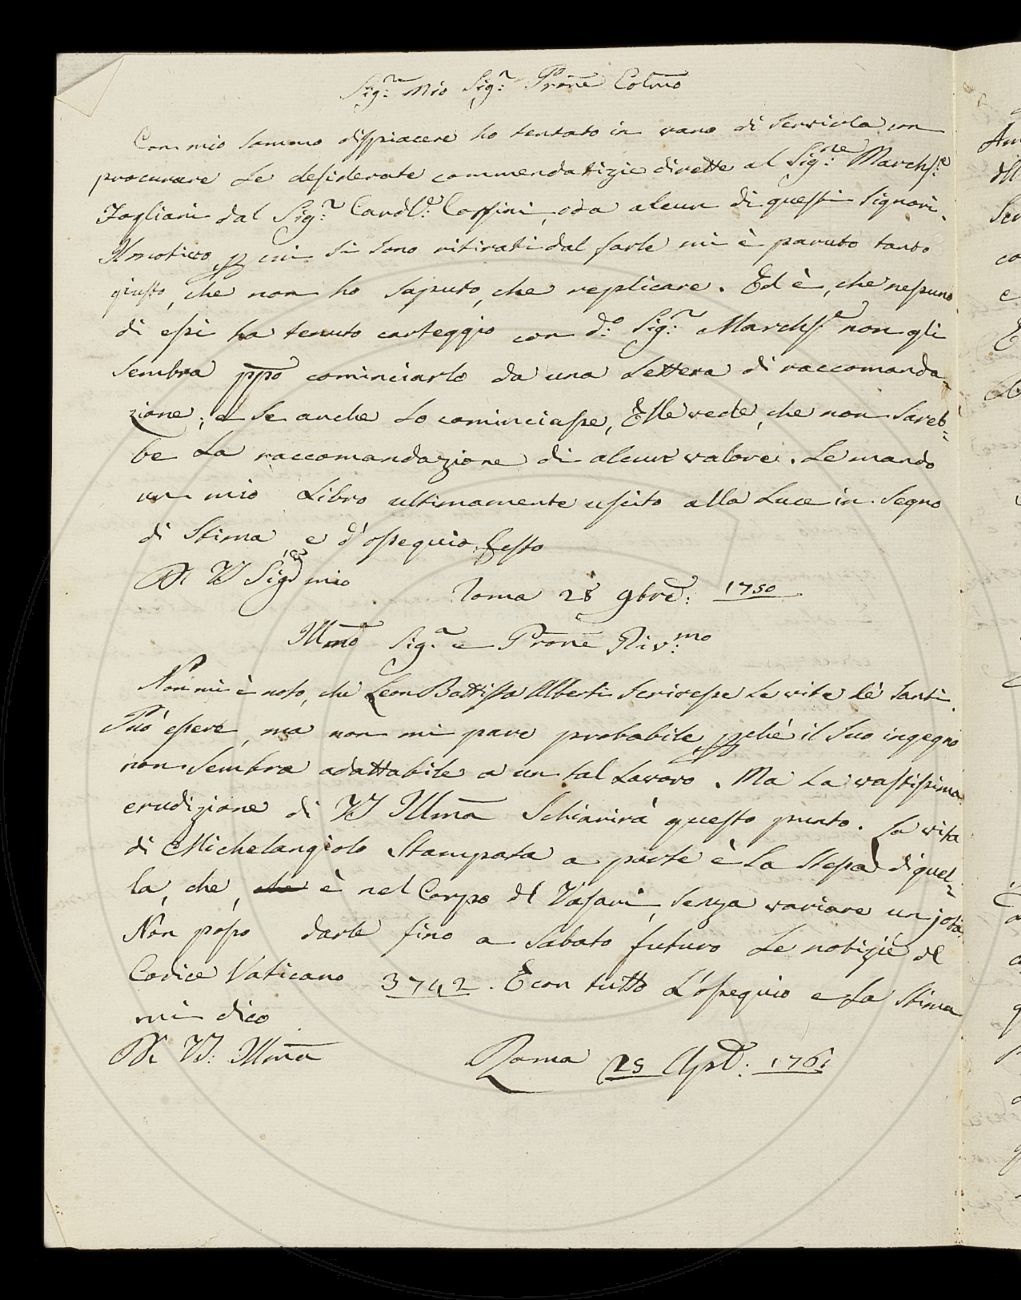 Sig.r mio Sig.r Prone Colmo
Con mio sommo dispiacere ho tentato in vano di servirla con
procurare le desiderate commendatizie dirette al Sig.ne March.se
Tagliani dal Sig.r Card.le Corsini, o da alcun di questi Signori.
Il motivo p cui si sono ritirati dal farle mi è paruto tanto
giusto, che non ho saputo, che replicare. Ed è, che nessuno
di essi ha tenuto carteggio con d.o Sig.r March.se non gli
sembra ppo cominciarlo da una lettera di raccomanda
zione; e se anche lo cominciasse, Ella vede, che non sareb-
be la raccomandazione di alcun valore. Le mando
un mio Libro ultimamente uscito alla luce in segno
di stima, e d'ossequio. Resto
Di VS Sig.ria mio
Roma 28 9bre: 1750
Illmo Sig.r e Prone Riv.mo
Non mi è noto, che Leon Battista Alberti scrivesse le vite de' Santi.
Può essere, ma non mi pare probabile, pchè il suo ingegno
non sembra adattabile a un tal lavoro. Ma la vastissima
erudizione di VS Illma schiarirà questo punto. La vita
di Michelangiolo stampata a parte è la stessa di quel-
la, che, che è nel Corpo del Vasari, senza variare un jota.
Non posso darle fino a Sabato futuro le notizie del
Codice Vaticano 3742. E con tutto l'ossequio e la stima
mi dico
Di VS: Illma
Roma 25 Ap.le: 1761